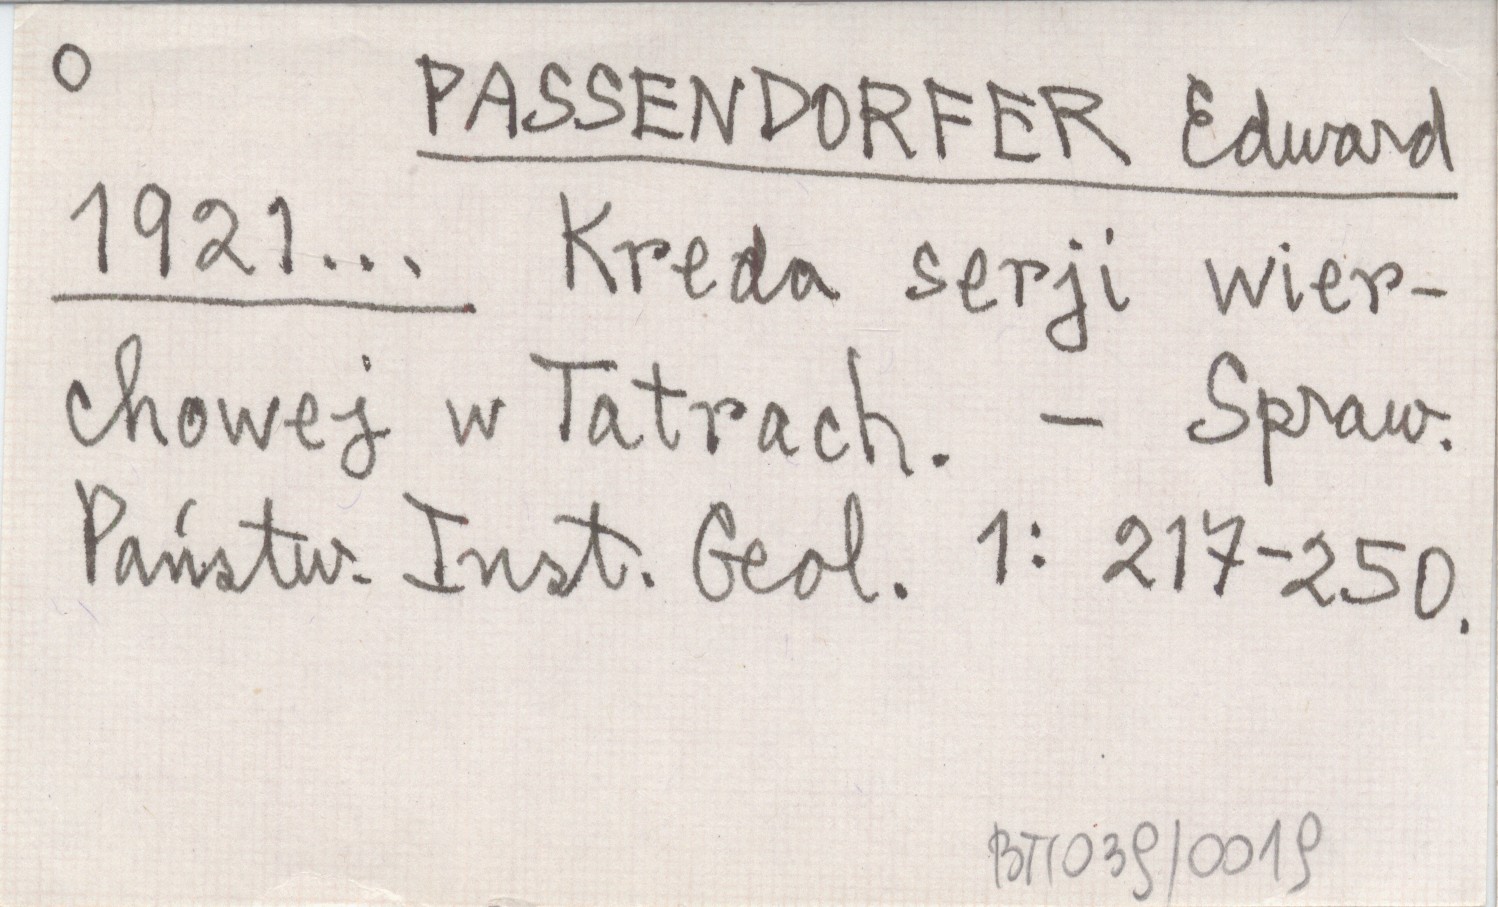 O PASSENDORFER Edward
1921... Kreda serji wier-
chowej w Tatrach. - Spraw.
Państw. Inst. Geol. 1: 217-250.
BT/039/0019